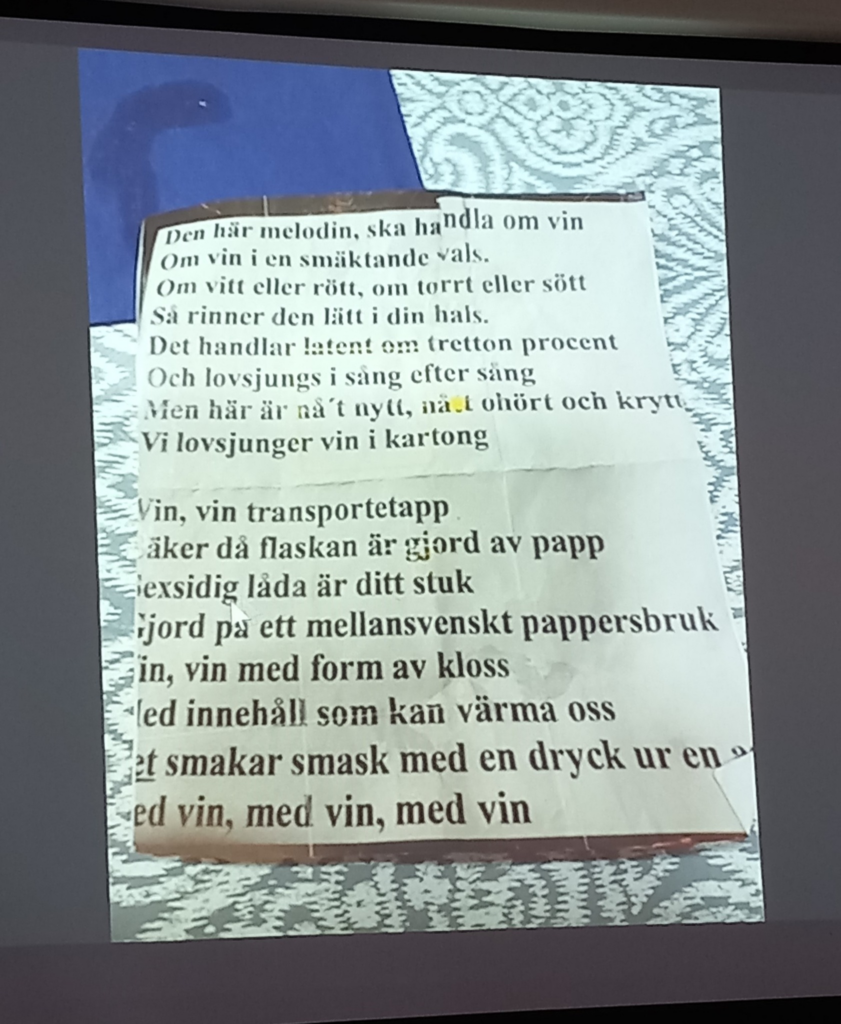 Den här melodin, ska handla om vin
Om vin i en smäktande vals.
Om vitt eller rött, om torrt eller sött
Så rinner den lätt i din hals.
Det handlar latent om tretton procent
Och lovsjungs i sång efter sång
Men här är nå´t nytt, nå´t ohört och krytt
Vi lovsjunger vin i kartong
Vin, vin transportetapp
äker då flaskan är gjord av papp
Sexsidig låda är ditt stuk
Gjord på ett mellansvenskt pappersbruk
in, vin med form av kloss
ed innehåll som kan värma oss
et smakar smask med en dryck ur en
ed vin, med vin, med vin